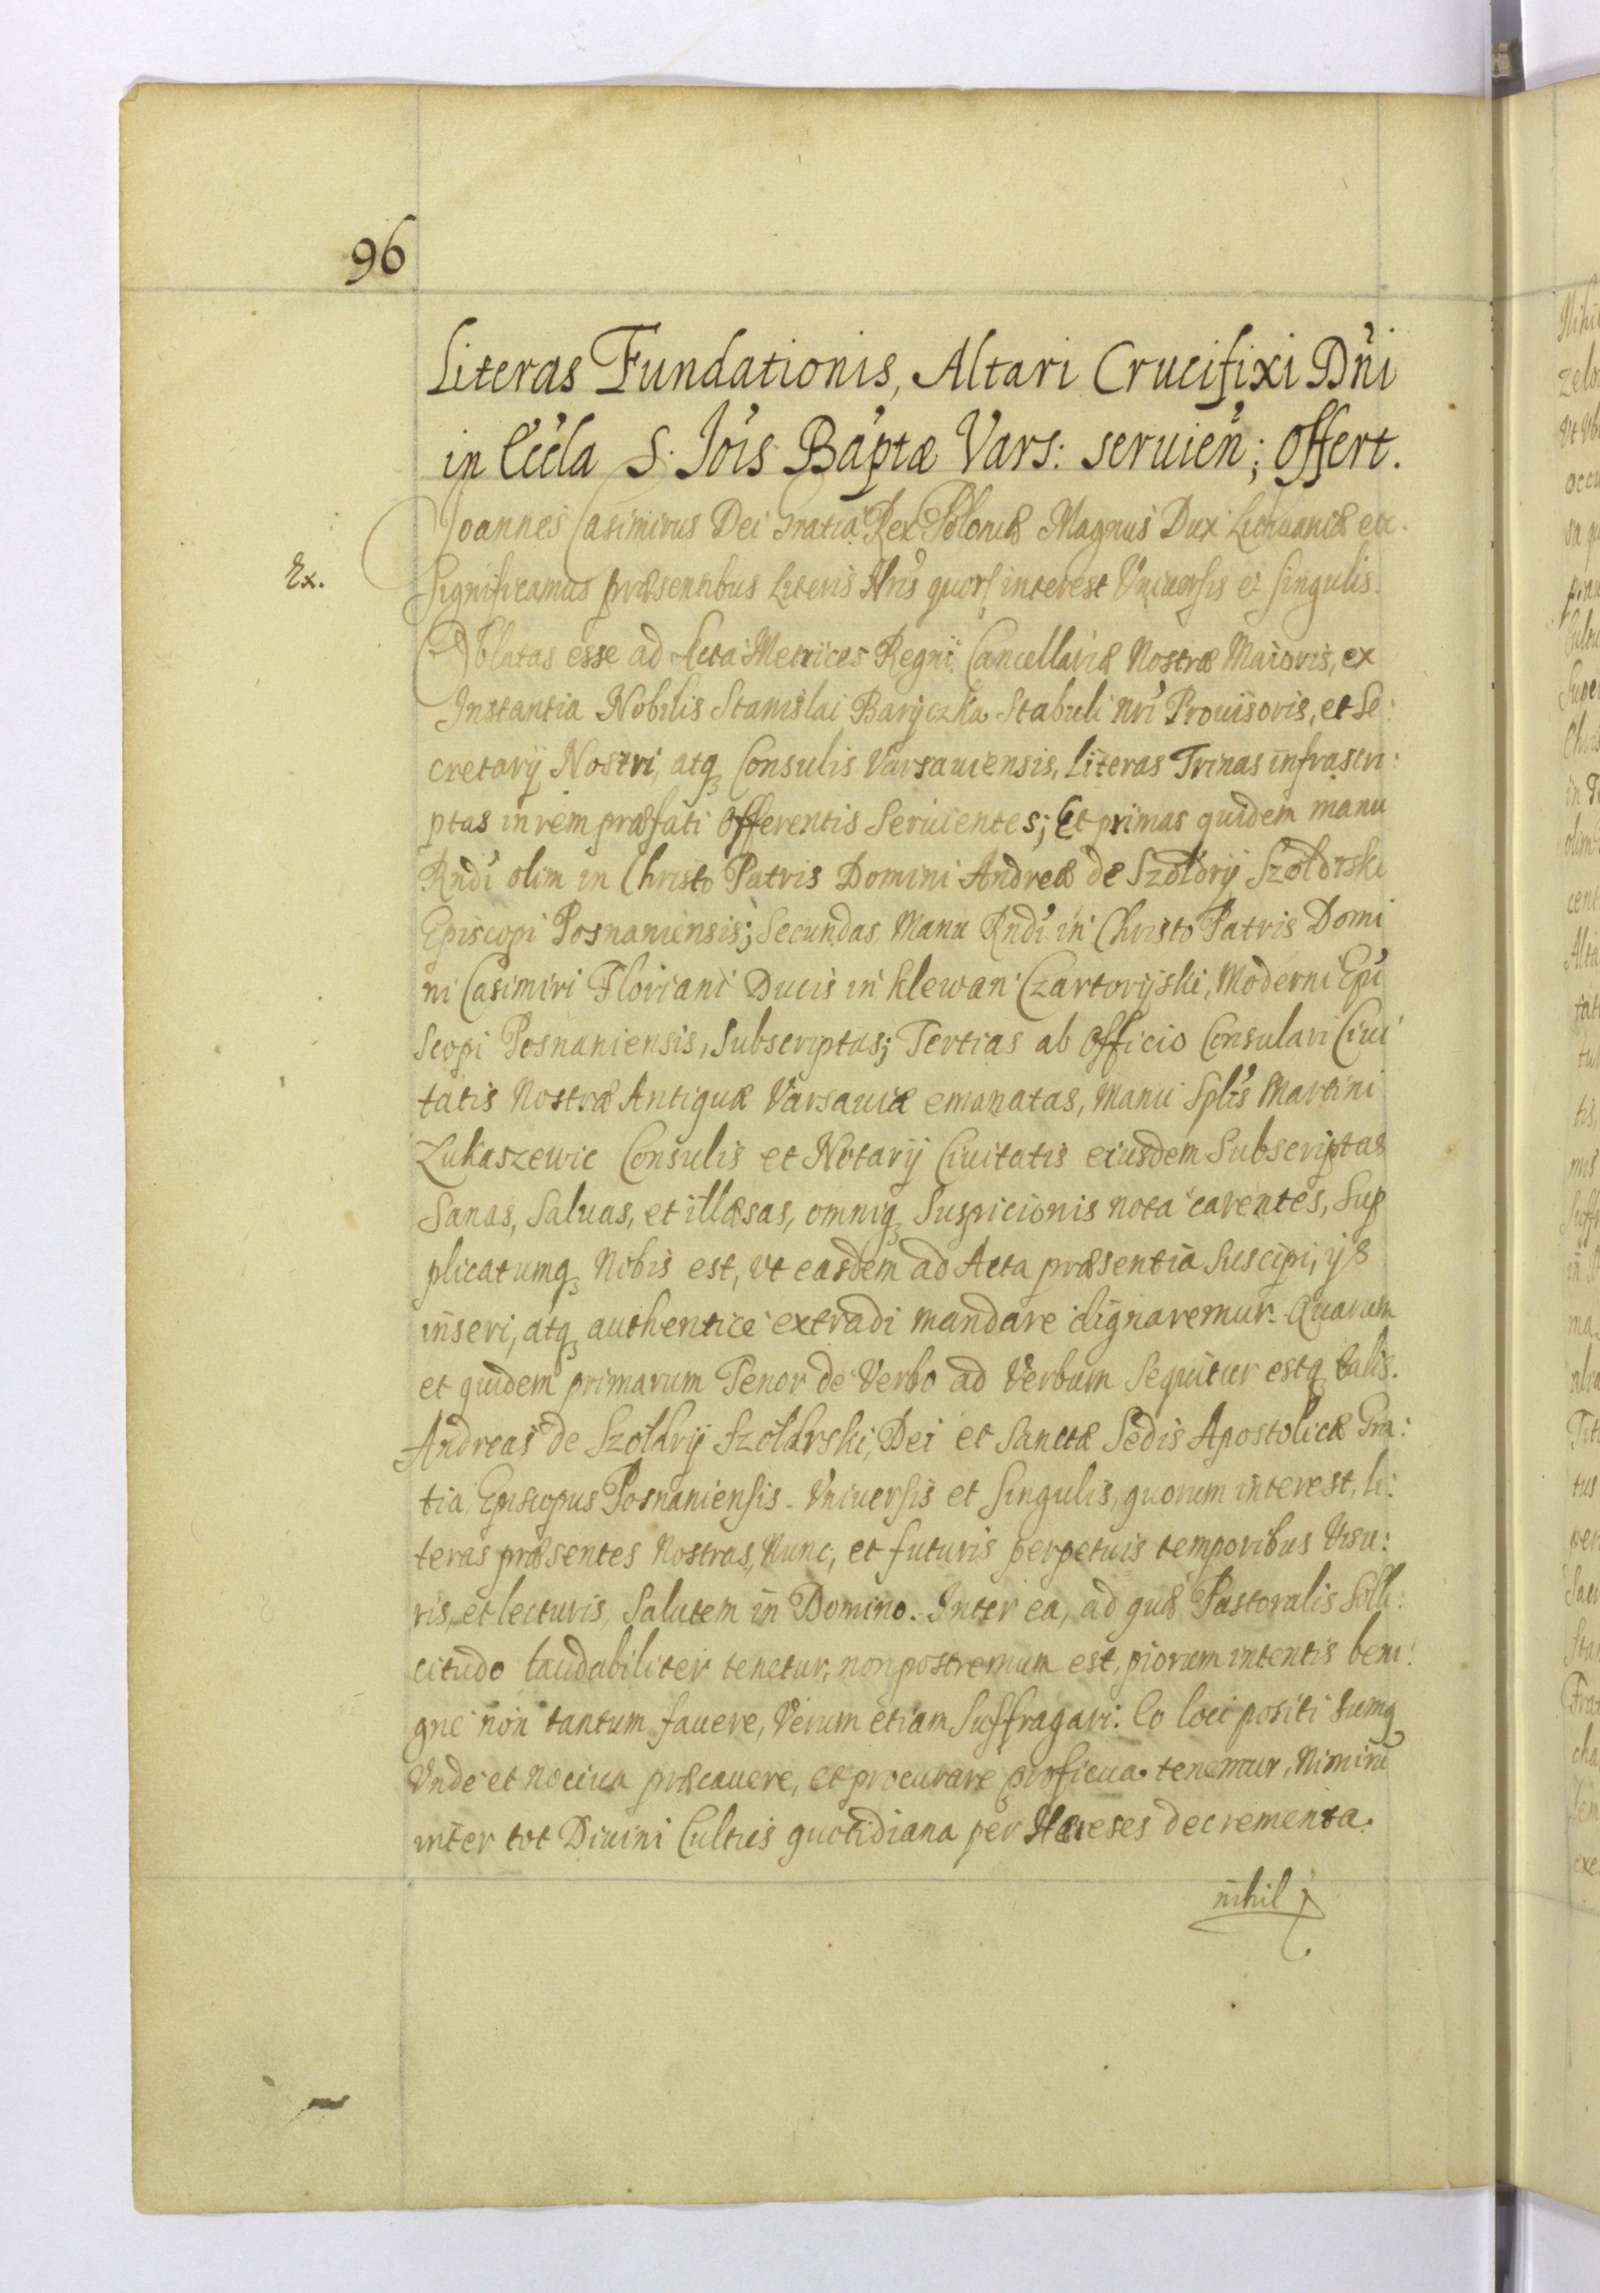 96
Literas Fundationis, Altari Crucifixi Dn̄i
in Eccla S. Jois Baptæ Vars: seruien; offert.
Joannes Casimirus Dei Gratia Rex Poloniæ Magnus Dux Lithuaniæ etc.
Ex.
Significamus præsentibus Literis Nris quorum interest Vniuersis et singulis.
Oblatas esse ad Acta Metrices Regni Cancellariæ Nostræ Maioris, ex
Instantia Nobilis Stanislai Baryczka Stabuli nri Prouisoris, et Se:
cretarij Nostri, atq Consulis Varsauiensis, Literas Trinas infrascri:
ptas in rem præfati Offerentis Seruientes; Et primas quidem manu
Rndi olim in Christo Patris Domini Andreæ de Szoldry Szoldrski
Episcopi Posnaniensis; Secundas Manu Rndi in Christo Patris Domi
ni Casimiri Floriani Ducis in Klewan Czartoryiski, Moderni Epi
scopi Posnaniensis, Subscriptas; Tertias ab Officio Consulari Ciui
tatis Nostræ Antiquæ Varsauiæ emanatas, Manu Splis Martini
Lukaszewic Consulis et Notarij Ciuitatis eiusdem Subscriptas
Sanas, Saluas, et illæsas, omniq Suspicionis nota carentes, Sup
plicatumq Nobis est, vt easdem ad Acta præsentia suscipi, ijs
inseri, atq authentice extradi mandare dignaremur. Quarum
et quidem primarum Tenor de Verbo ad Verbum Sequitur estq talis.
Andreas de Szoldry Szoldrski, Dei et Sanctæ Sedis Apostolicæ Gra:
tia Episcopus Posnaniensis. Vniuersis et singulis, quorum interest, li:
teras præsentes Nostras, Nunc, et futuris perpetuis temporibus Visu:
ris, et lecturis, Salutem in Domino. Inter ea, ad quæ Pastoralis Solli:
citudo laudabiliter tenetur, non postremum est, piorum intentis beni:
gne non tantum fauere, Verum etiam Suffragari. Eo loci positi sumq
Vnde et nociua præcauere, et procurare proficua tenemur, Nimirū
inter tot Diuini Cultus quotidiana per Hæreses decrementa.
nihil